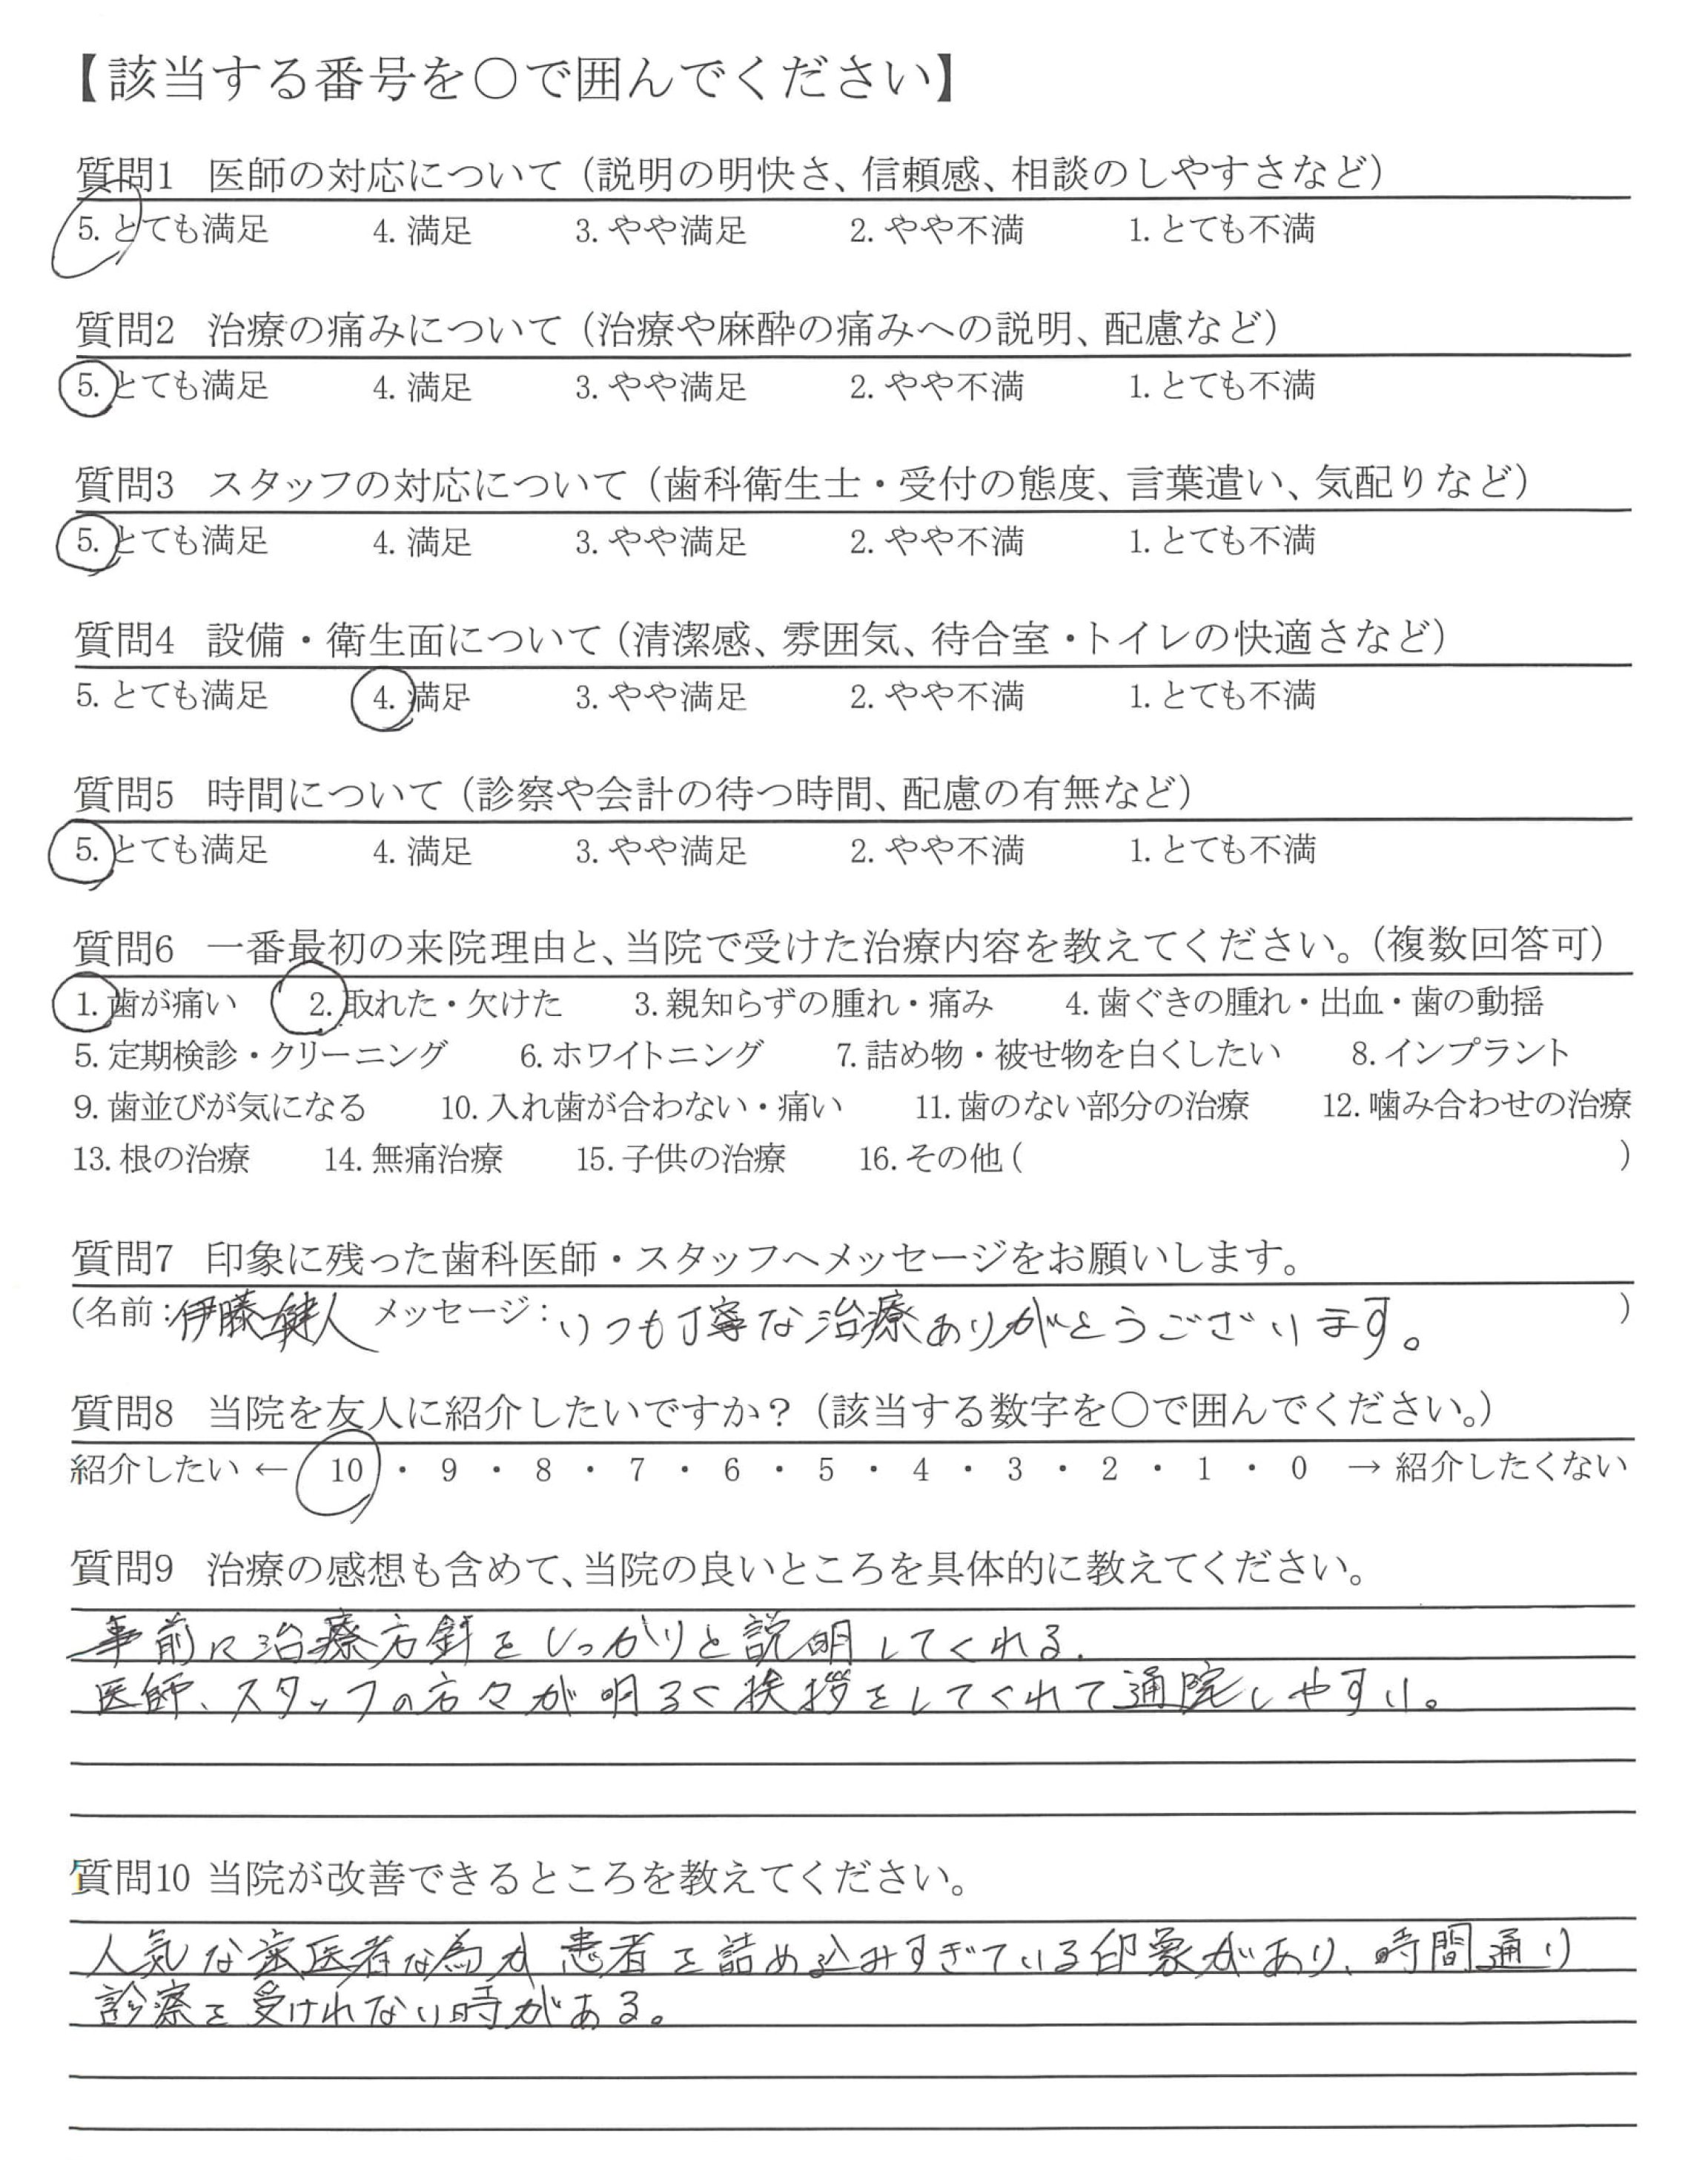 【該当する番号を〇で囲んでください】
質問1 医師の対応について（説明の明快さ、信頼感、相談のしやすさなど）
5. とても満足 4. 満足 3. やや満足 2. やや不満 1. とても不満
質問2 治療の痛みについて（治療や麻酔の痛みへの説明、配慮など）
5. とても満足 4. 満足 3. やや満足 2. やや不満 1. とても不満
質問3 スタッフの対応について（歯科衛生士・受付の態度、言葉遣い、気配りなど）
5. とても満足 4. 満足 3. やや満足 2. やや不満 1. とても不満
質問4 設備・衛生面について（清潔感、雰囲気、待合室・トイレの快適さなど）
5. とても満足 4. 満足 3. やや満足 2. やや不満 1. とても不満
質問5 時間について（診察や会計の待つ時間、配慮の有無など）
5. とても満足 4. 満足 3. やや満足 2. やや不満 1. とても不満
質問6 一番最初の来院理由と、当院で受けた治療内容を教えてください。（複数回答可）
1. 歯が痛い 2. 取れた・欠けた 3. 親知らずの腫れ・痛み 4. 歯ぐきの腫れ・出血・歯の動揺
5. 定期検診・クリーニング 6. ホワイトニング 7. 詰め物・被せ物を白くしたい 8. インプラント
9. 歯並びが気になる 10. 入れ歯が合わない・痛い 11. 歯のない部分の治療 12. 噛み合わせの治療
13. 根の治療 14. 無痛治療 15. 子供の治療 16. その他（ ）
質問7 印象に残った歯科医師・スタッフへメッセージをお願いします。
（名前：伊藤健人 メッセージ：いつも丁寧な治療ありがとうございます。）
質問8 当院を友人に紹介したいですか？（該当する数字を〇で囲んでください。）
紹介したい ← 10 ・ 9 ・ 8 ・ 7 ・ 6 ・ 5 ・ 4 ・ 3 ・ 2 ・ 1 ・ 0 → 紹介したくない
質問9 治療の感想も含めて、当院の良いところを具体的に教えてください。
事前に治療方針をしっかりと説明してくれる.
医師、スタッフの方々が明るく挨拶をしてくれて通院しやすい。
質問10 当院が改善できるところを教えてください。
人気な歯医者な為か患者を詰め込みすぎている印象があり、時間通り
診察を受けれない時がある。